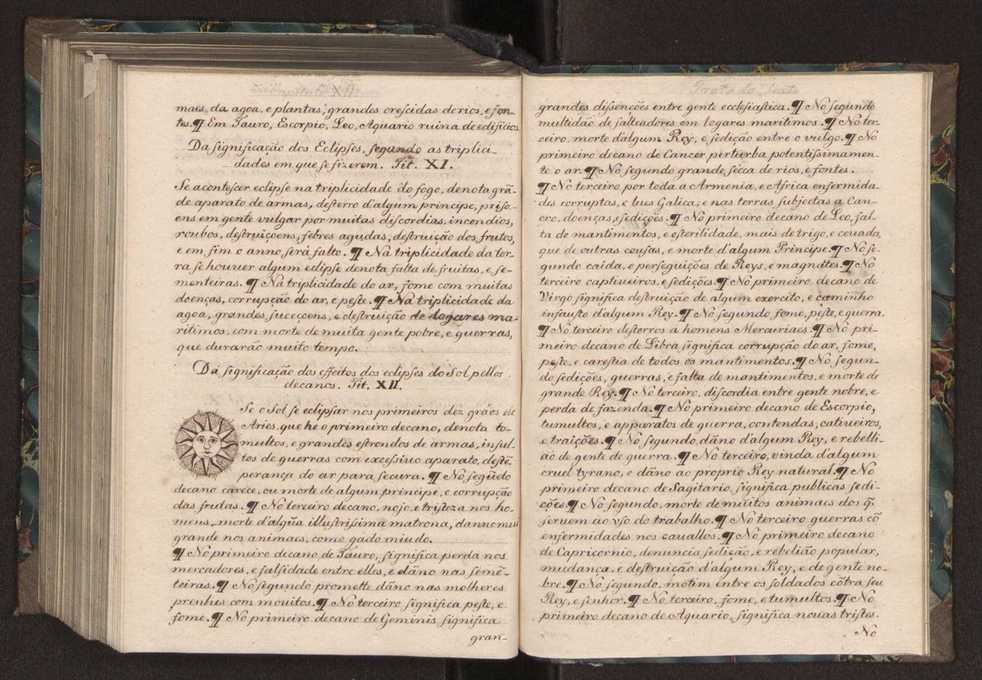 maes, da agoa, e plantas, grandes cresçidas de rios, e fon-
tes. ¶ Em Tauro, Escorpio, Leo, Aquario ruina de edifiçios
Da significação dos Eclipses, segundo as triplici-
dades em que se fizerem. Tit. XI.
Se acontesçer eclipse na triplicidade do fogo, denota grã-
de aparato de armas, desterro d'algum principe, priso-
ens em gente vulgar por muitas discordias, incendios,
roubos, destruiçoens, febres agudas, destruição dos frutos,
e em fim o anno, será falto. ¶ Na triplicidade da ter-
ra se houuer algum eclipse denota falta de fruitas, e se-
menteiras. ¶ Na triplicidade do ar, fome com muitas
doenças, corrupção do ar, e peste. ¶ Na triplicidade da
agoa, grandes, suceçoens, e destruição de logares ma-
ritimos, com morte de muita gente pobre, e guerras,
que durarão muito tempo.
Da significação dos effeitos dos eclipses do Sol pellos
decanos. Tit. XII.
Se o Sol se eclipsar nos primeiros dez grãos de
Aries, que he o primeiro decano, denota to-
multos, e grandes estrondos de armas, insul-
tos de guerras com excessiuo aparato, destẽ-
perança do ar para secura. ¶ No segũdo
decano carece, ou morte de algum principe, e corrupção
das frudas. ¶ No terceiro decano, nojo, e tristeza nos ho-
mens, morte d'algũa illustrisima matrona, danno mui
grande nos animaes, como gado miudo.
¶ No primeiro decano de Tauro, significa perda nos
mercadores, e falsidade entre elles, e dãno nas semẽ-
teiras. ¶ No segundo promette dãno nas molheres
prenhes com mouitos. ¶ No terceiro, significa peste, e
fome. ¶ No primeiro decano de Geminis significa
gran-
Tratado Sexto
grandes dissenções entre gente ecclesiastica. ¶ No segundo
multidão de salteadores em logares maritimos. ¶ No ter-
ceiro, morte d'algum Rey, e sedição entre o vulgo. ¶ No
primeiro decano de Cancer perturba potentissimamen-
te o ar. ¶ No segundo grande, secca de rios, e fontes.
¶ No terceiro por toda a Armenia, e Africa enfermida-
des corruptas, e lues Galica; e nas terras subjectas a Can-
cro, doenças, sedições. ¶ No primeiro decano de Leo, fal-
ta de mantimentos, e esterilidade, mais de trigo, e ceuada,
que de outras cousas, e morte d'algum Principe. ¶ No se-
gundo caida, e perseguições de Reys, e magnates. ¶ No
terceiro captiueiros, e sedições. ¶ No primeiro decano de
Virgo significa destruição de algum exercito, e caminho
infausto d'algum Rey. ¶ No segundo, fome, peste, e guerra.
¶ No terceiro desterros a homens Mercuriaes. ¶ No pri-
meiro decano de Libra, significa corrupção do ar, fome,
peste, e carestia de todos os mantimentos. ¶ No segun-
do sedições, guerras, e falta de mantimentos, e morte de
grande Rey. ¶ No terceiro, discordia entre gente nobre, e
perda de fazenda. ¶ No primeiro decano de Escorpio,
tumultos, e apparatos de guerra, contendas, catiueiros,
e traições. ¶ No segundo, dãno d'algum Rey, e rebelli-
ão de gente de guerra. ¶ No terceiro, vinda d'algum
cruel tyrano, e dãno ao proprio Rey natural. ¶ No
primeiro decano de Sagitario, significa publicas sedi-
ções. ¶ No segundo, morte de muitos animaes dos q̃
seruem ao vso do trabalho. ¶ No terceiro guerras cõ
enfermidades nos cauallos. ¶ No primeiro decano
de Capricornio, denuncia sedição, e rebelião popular,
mudança, e destruição d'algum Rey, e de gente no-
bre. ¶ No segundo, motim entre os soldados cõtra seu
Rey, e senhor. ¶ No terceiro, fome, e tumultos. ¶ No
primeiro decano de Aquario, significa nouas tristes.
No